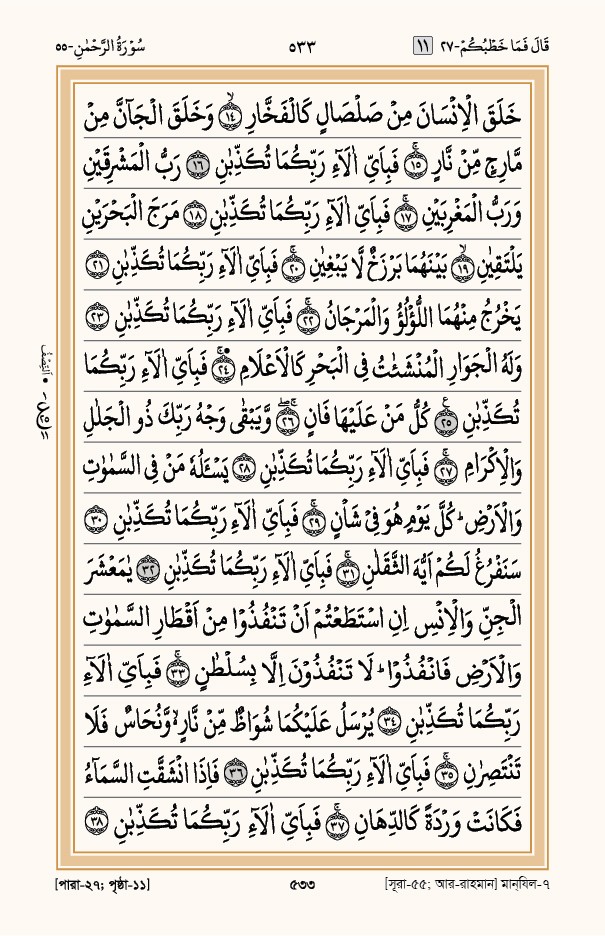 قَالَ فَمَا خَطْبُكُمْ-٢٧ ١١ ٥٣٣ سُوْرَةُ الرَّحْمٰنِ-٥٥
خَلَقَ الْاِنْسَانَ مِنْ صَلْصَالٍ كَالْفَخَّارِ ۙ ﴿١٤﴾ وَخَلَقَ الْجَآنَّ مِنْ
مَّارِجٍ مِّنْ نَّارٍ ۚ ﴿١٥﴾ فَبِاَيِّ اٰلَآءِ رَبِّكُمَا تُكَذِّبٰنِ ﴿١٦﴾ رَبُّ الْمَشْرِقَيْنِ
وَرَبُّ الْمَغْرِبَيْنِ ۚ ﴿١٧﴾ فَبِاَيِّ اٰلَآءِ رَبِّكُمَا تُكَذِّبٰنِ ﴿١٨﴾ مَرَجَ الْبَحْرَيْنِ
يَلْتَقِيٰنِ ۙ ﴿١٩﴾ بَيْنَهُمَا بَرْزَخٌ لَّا يَبْغِيٰنِ ۚ ﴿٢٠﴾ فَبِاَيِّ اٰلَآءِ رَبِّكُمَا تُكَذِّبٰنِ ﴿٢١﴾
يَخْرُجُ مِنْهُمَا اللُّؤْلُؤُ وَالْمَرْجَانُ ۚ ﴿٢٢﴾ فَبِاَيِّ اٰلَآءِ رَبِّكُمَا تُكَذِّبٰنِ ﴿٢٣﴾
وَلَهُ الْجَوَارِ الْمُنْشَئٰتُ فِى الْبَحْرِ كَالْاَعْلَامِ ۚ ﴿٢٤﴾ فَبِاَيِّ اٰلَآءِ رَبِّكُمَا
تُكَذِّبٰنِ ۧ ﴿٢٥﴾ كُلُّ مَنْ عَلَيْهَا فَانٍ ۚۖ ﴿٢٦﴾ وَّيَبْقٰى وَجْهُ رَبِّكَ ذُو الْجَلٰلِ
وَالْاِكْرَامِ ۚ ﴿٢٧﴾ فَبِاَيِّ اٰلَآءِ رَبِّكُمَا تُكَذِّبٰنِ ﴿٢٨﴾ يَسْـَٔلُهٗ مَنْ فِى السَّمٰوٰتِ
وَالْاَرْضِ ؕ كُلَّ يَوْمٍ هُوَ فِىْ شَاْنٍ ۚ ﴿٢٩﴾ فَبِاَيِّ اٰلَآءِ رَبِّكُمَا تُكَذِّبٰنِ ﴿٣٠﴾
سَنَفْرُغُ لَكُمْ اَيُّهَ الثَّقَلٰنِ ۚ ﴿٣١﴾ فَبِاَيِّ اٰلَآءِ رَبِّكُمَا تُكَذِّبٰنِ ﴿٣٢﴾ يٰمَعْشَرَ
الْجِنِّ وَالْاِنْسِ اِنِ اسْتَطَعْتُمْ اَنْ تَنْفُذُوْا مِنْ اَقْطَارِ السَّمٰوٰتِ
وَالْاَرْضِ فَانْفُذُوْا ؕ لَا تَنْفُذُوْنَ اِلَّا بِسُلْطٰنٍ ۚ ﴿٣٣﴾ فَبِاَيِّ اٰلَآءِ
رَبِّكُمَا تُكَذِّبٰنِ ﴿٣٤﴾ يُرْسَلُ عَلَيْكُمَا شُوَاظٌ مِّنْ نَّارٍ ۙ وَّنُحَاسٌ فَلَا
تَنْتَصِرٰنِ ۚ ﴿٣٥﴾ فَبِاَيِّ اٰلَآءِ رَبِّكُمَا تُكَذِّبٰنِ ﴿٣٦﴾ فَاِذَا انْشَقَّتِ السَّمَآءُ
فَكَانَتْ وَرْدَةً كَالدِّهَانِ ۚ ﴿٣٧﴾ فَبِاَيِّ اٰلَآءِ رَبِّكُمَا تُكَذِّبٰنِ ﴿٣٨﴾
[পারা-২৭; পৃষ্ঠা-১১] ৫৩৩ [সূরা-৫৫; আর-রাহমান] মান্‌যিল-৭